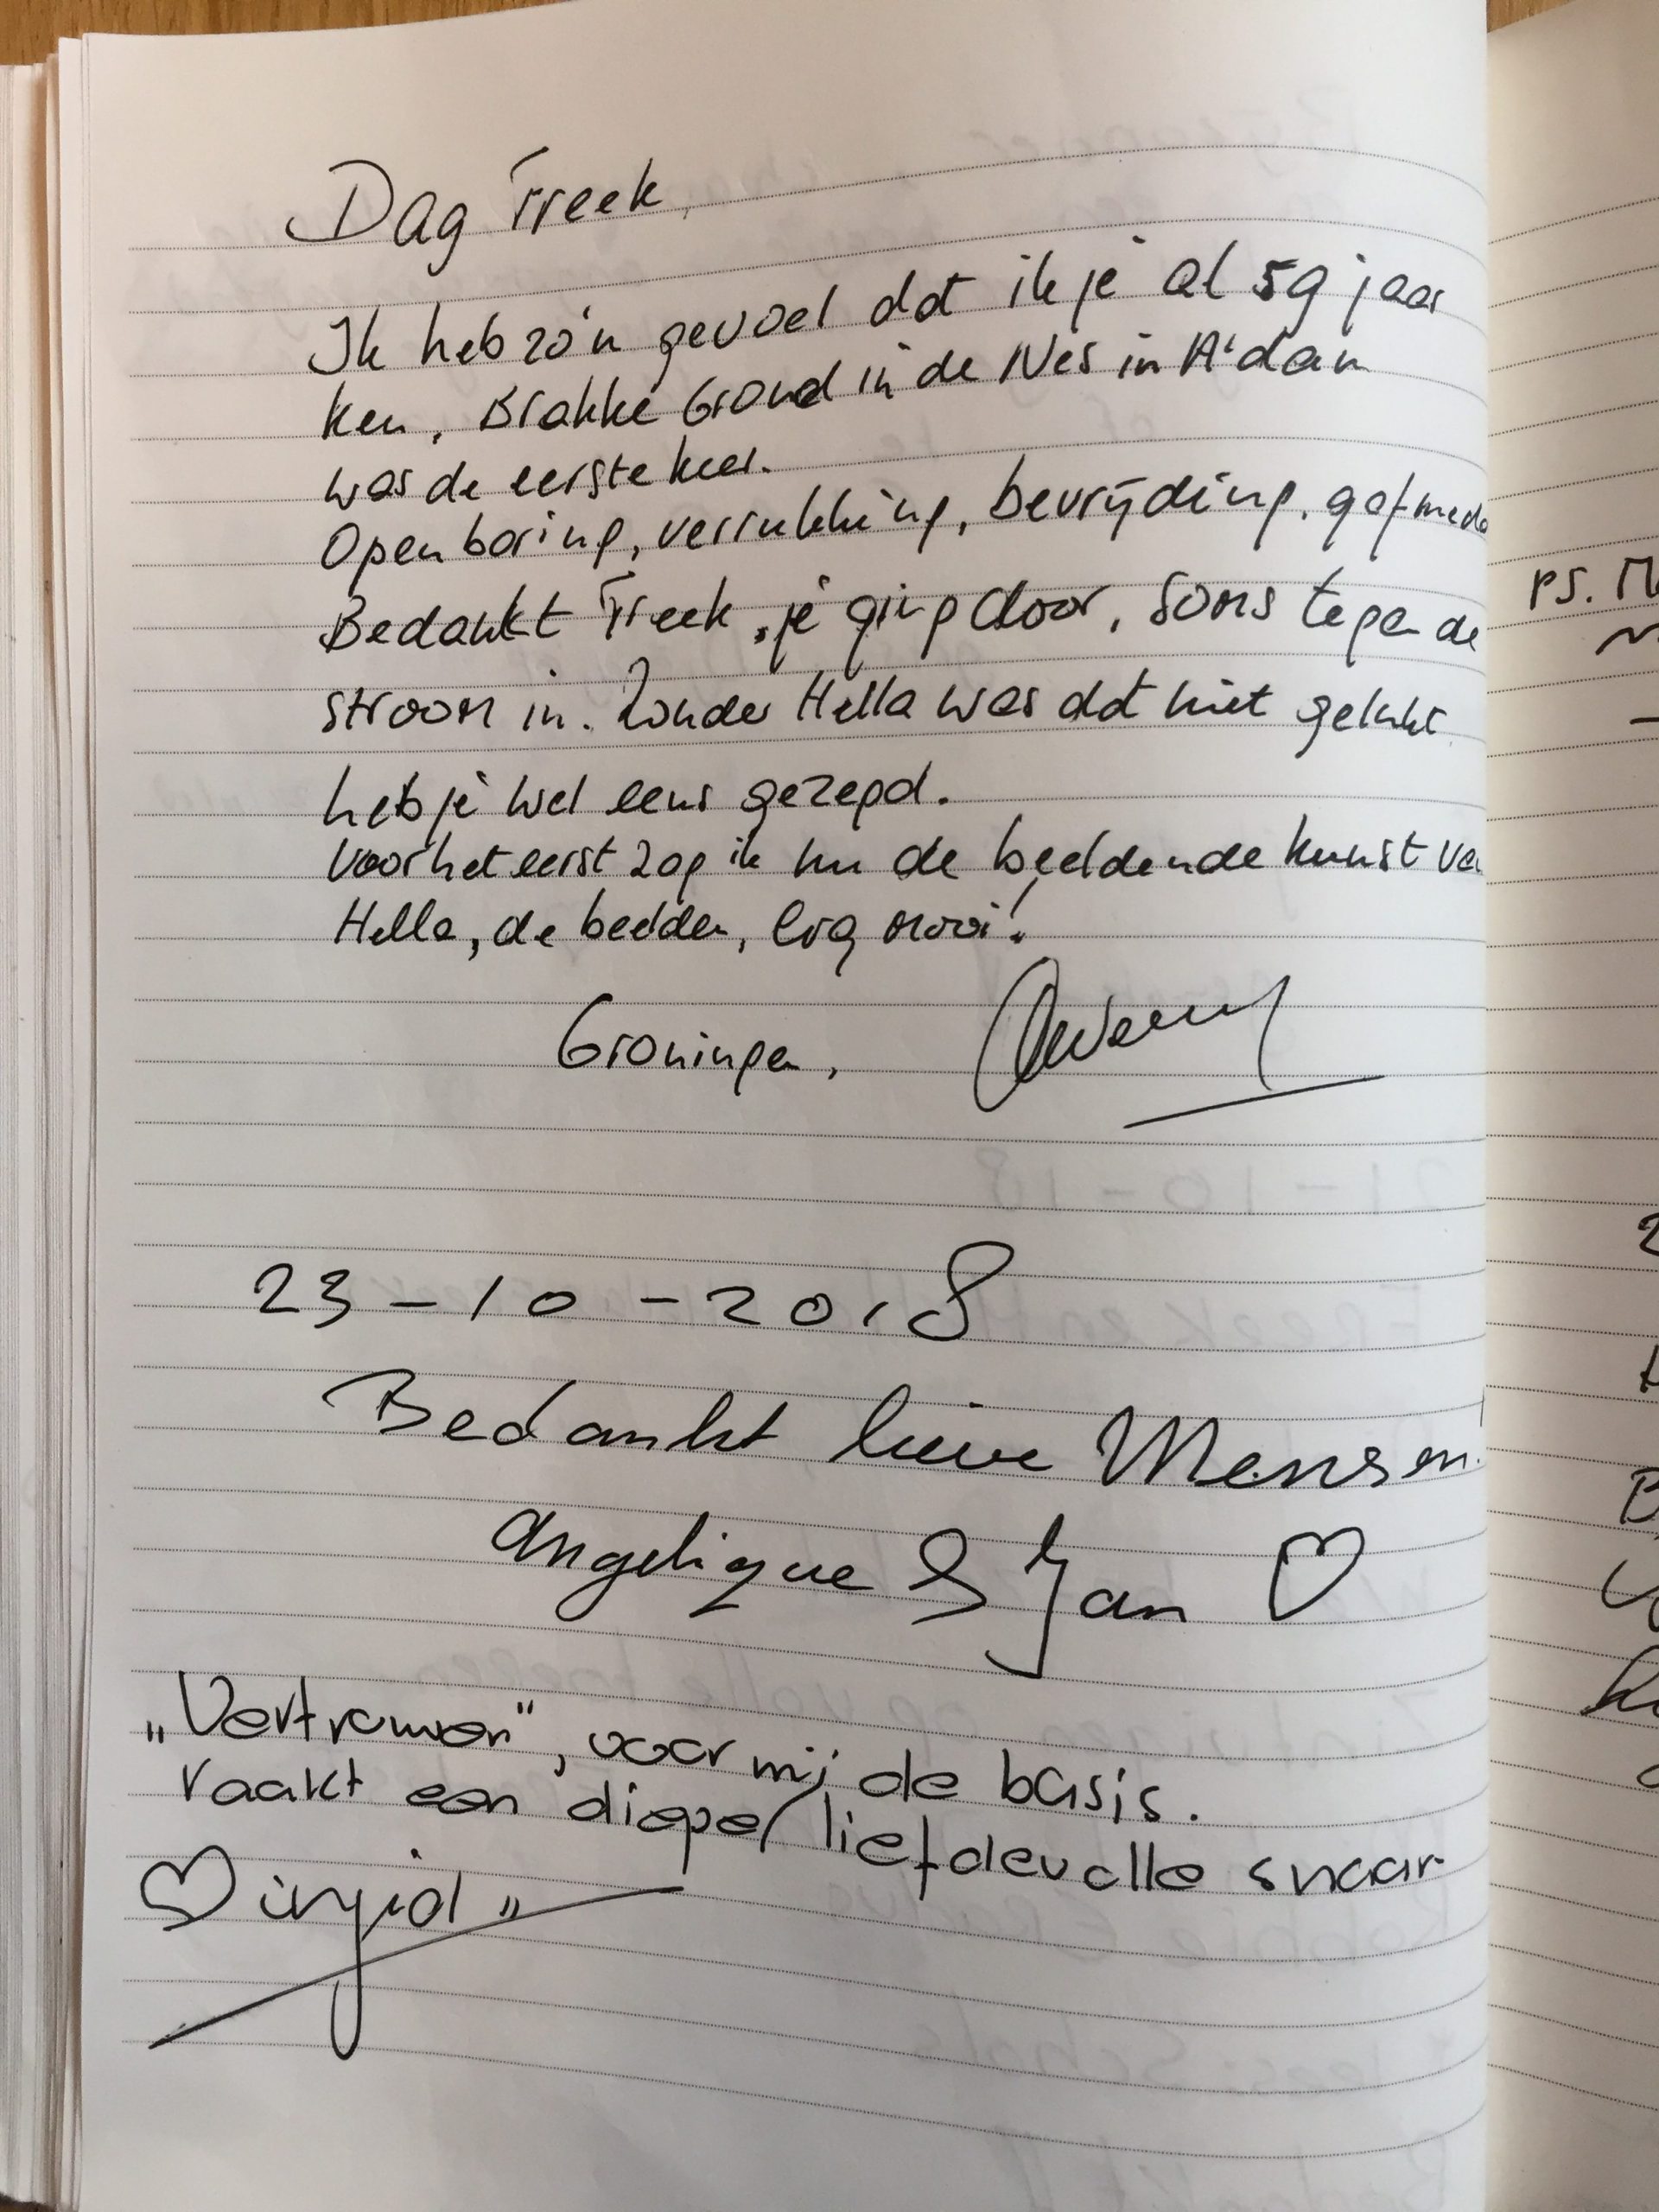 Dag Freek,
Ik heb zo'n gevoel dat ik je al 59 jaar
ken. Brakke Grond in de Nes in A'dam
was de eerste keer.
Openbaring, verrukking, bevrijding, gaf me de
Bedankt Freek, je ging door, soms tegen de
stroom in. Zonder Hella was dat niet gelukt
heb je wel eens gezegd.
Voor het eerst zag ik nu de beeldende kunst va
Hella, de beelden, erg mooi!
Groningen,
23-10-2018
Bedankt lieve Mensen.
Angelique & Jan ♡
„Vertrouwen", voor mij de basis.
raakt een diepe/liefdevolle snaar
♡
PS.